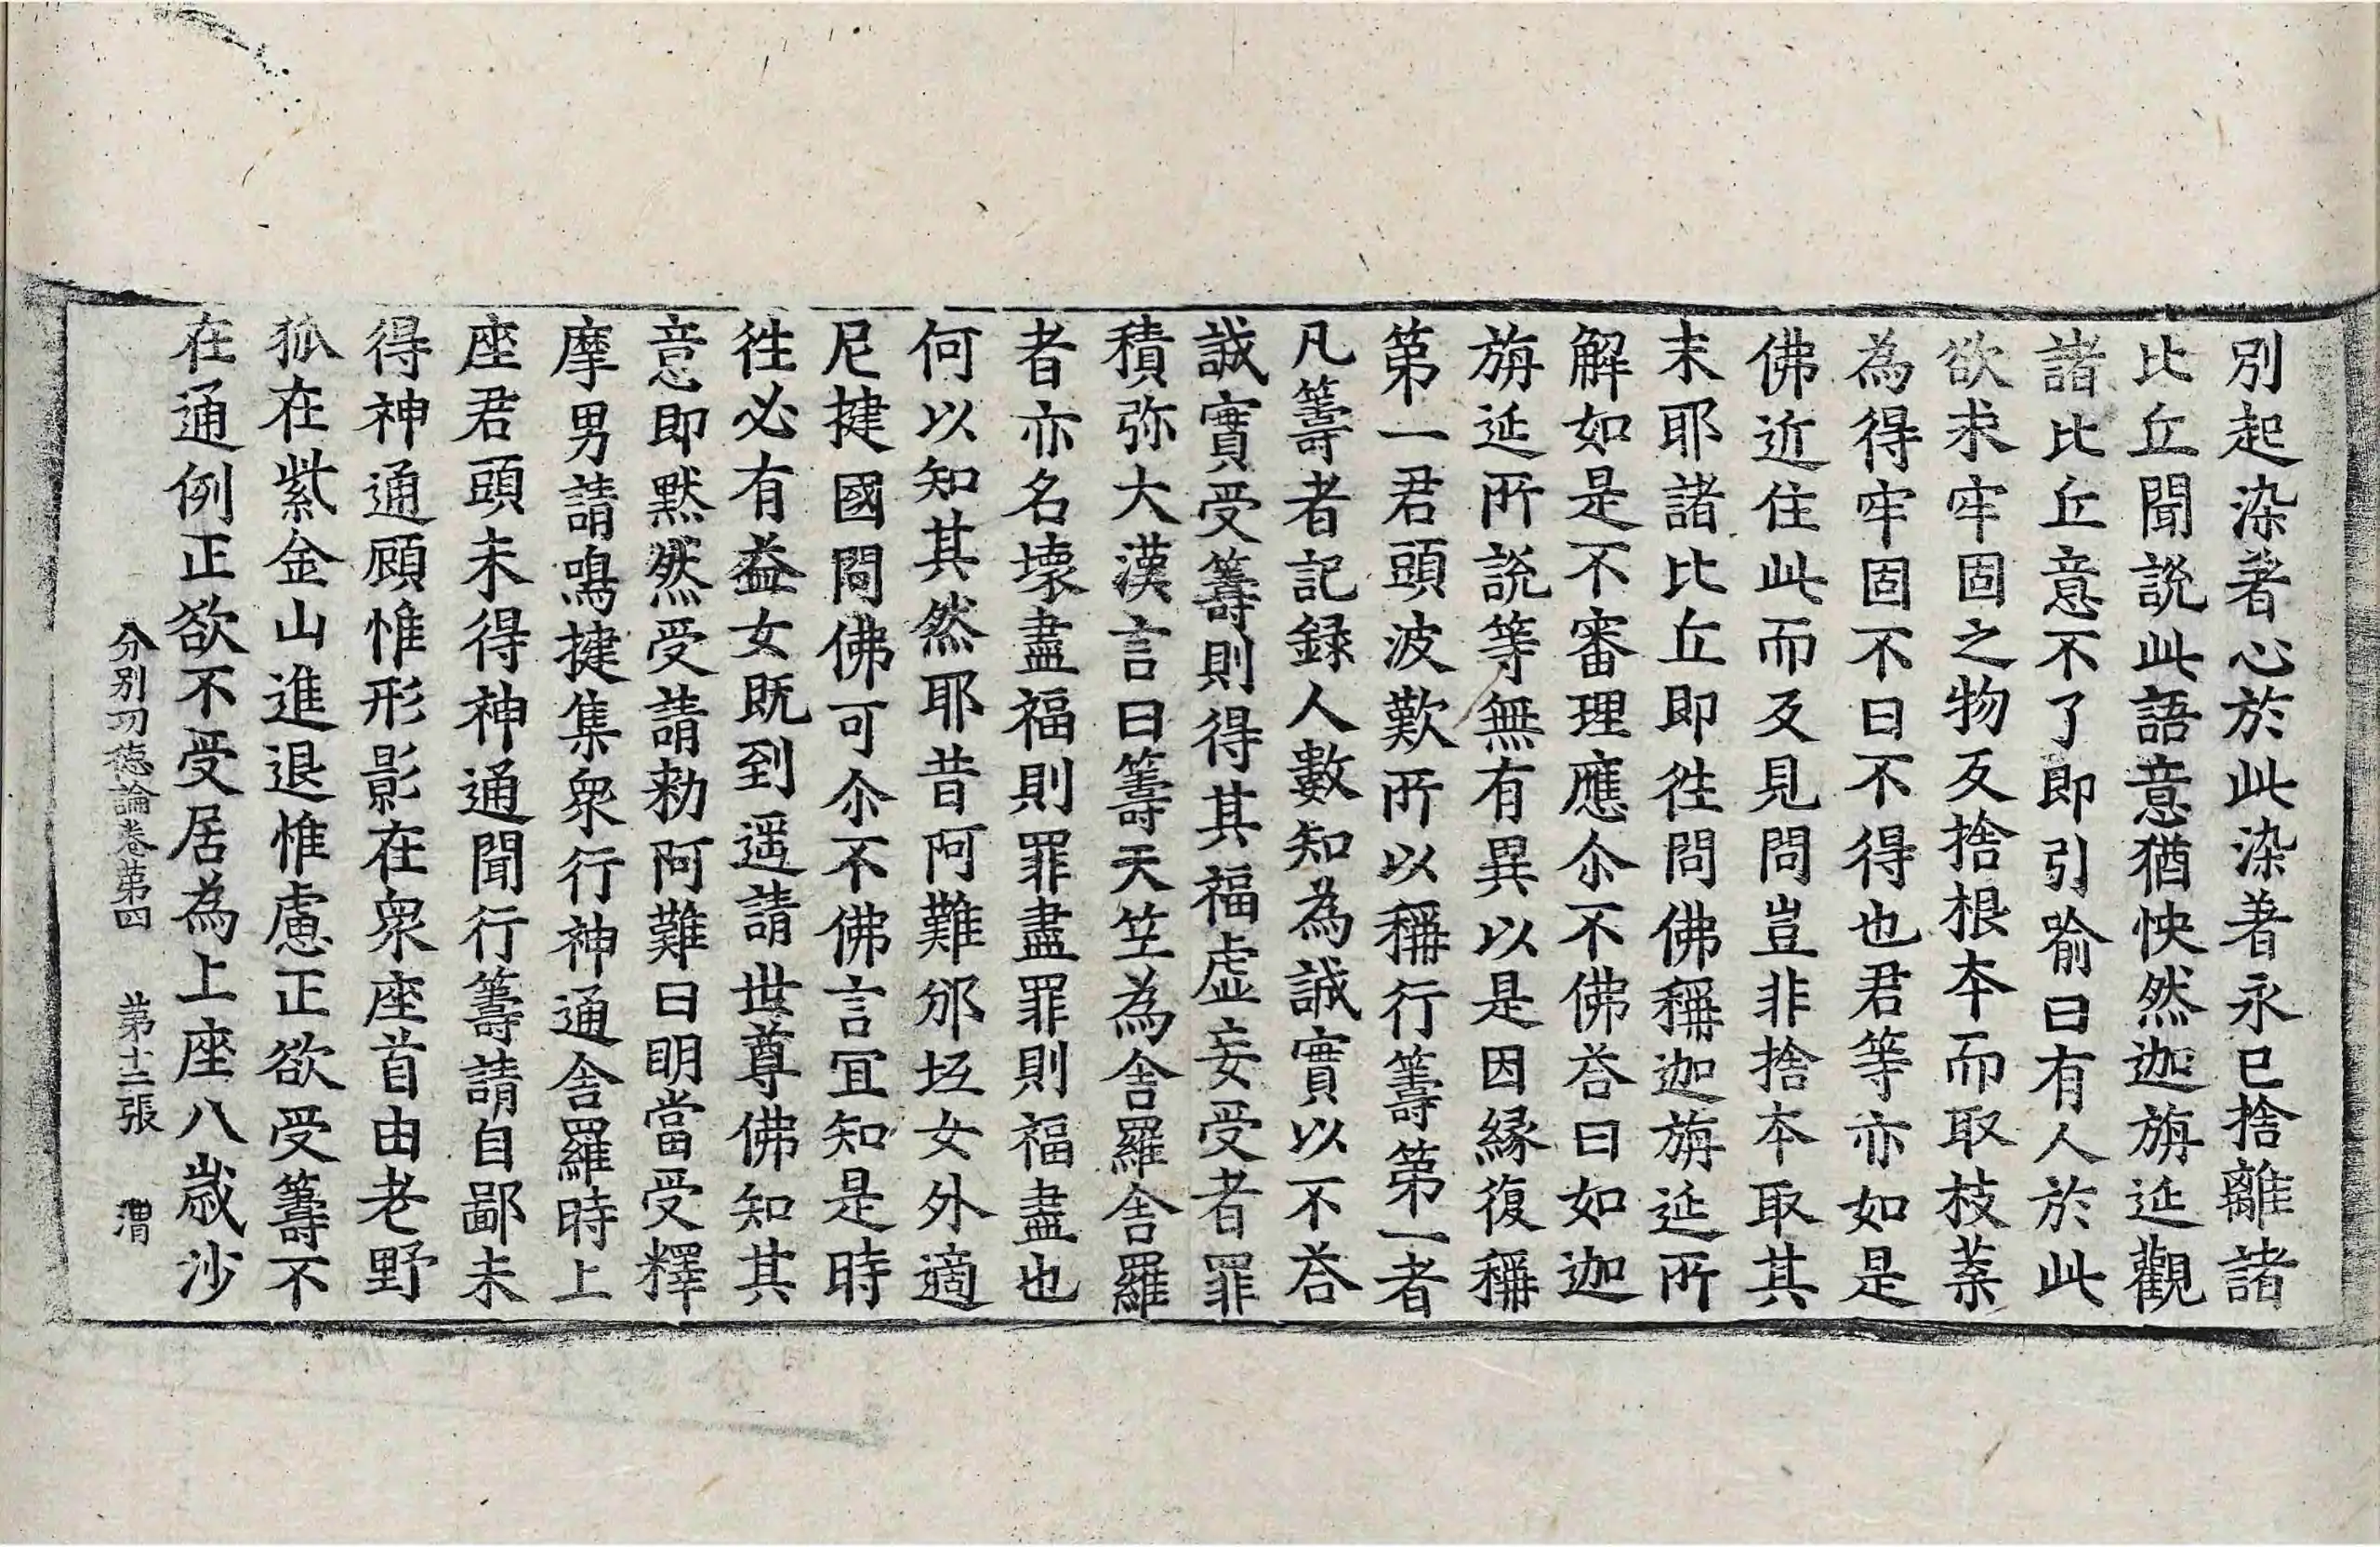 別起染著心於此染著永已捨離諸
比丘聞説此語意猶怏然迦旃延觀
諸比丘意不了即引喻曰有人於此
欲求牢固之物反捨根本而取枝葉
為得牢固不曰不得也君等亦如是
佛近住此而反見問豈非捨本取其
末耶諸比丘即徃問佛稱迦旃延所
解如是不審理應尒不佛荅曰如迦
旃延所説等無有異以是因縁復稱
第一君頭波歎所以稱行籌第一者
凡籌者記録人數知為誠實以不荅
誠實受籌則得其福虛妄受者罪
積弥大漢言曰籌天竺為舎羅舎羅
者亦名壞盡福則罪盡罪則福盡也
何以知其然耶昔阿難邠坻女外適
尼揵國問佛可尒不佛言冝知是時
徃必有益女既到遥請世尊佛知其
意即黙然受請勑阿難曰明當受釋
摩男請鳴揵集衆行神通舎羅時上
座君頭未得神通聞行籌請自鄙未
得神通顧惟形影在衆座首由老野
狐在紫金山進退惟慮正欲受籌不
在通例正欲不受居為上座八歲沙
分別功德論卷第四　第十二張　渭